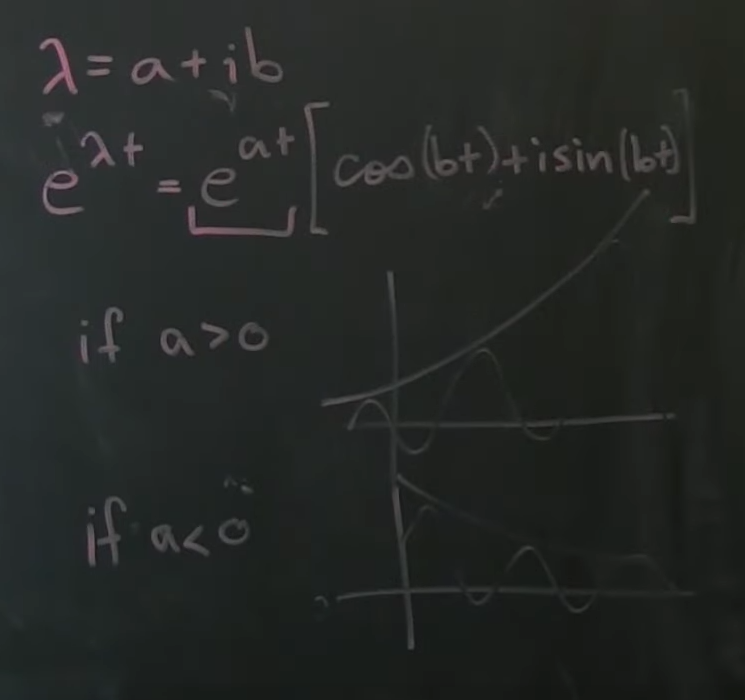 λ = a + ib
e^{λt} = e^{at} [cos(bt) + i sin(bt)]
if a > 0
if a < 0